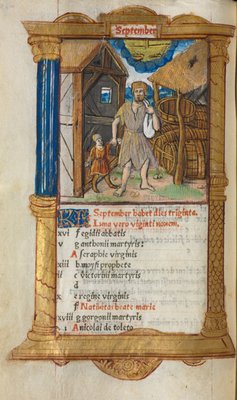 September
KL September habet dies triginta.
Luna vero viginti novem.
xvi f egidii abbatis
v g anthonii martyris
A seraphie virginis
xiii b moysi prophete
ii c victorini martyris
d
x e regine virginis
f Nativitas beate marie
xviii g gorgonii martyris
A nicolai de toleto